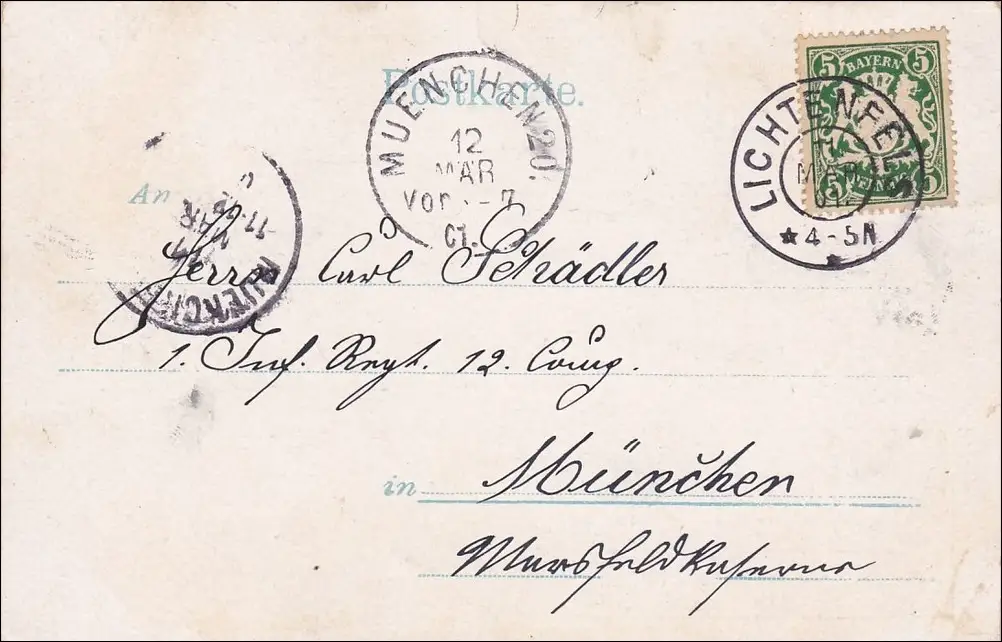 Postkarte.
5 BAYERN 5
5 PFENNIG 5
MUENCHEN 20.
12
MÄR
Vor 7
01.
LICHTENFELS
11
MÄR
01
★ 4-5N
An
Herrn Carl Schädler
1. Inf. Regt. 12. Comp.
in München
Marsfeldkaserne